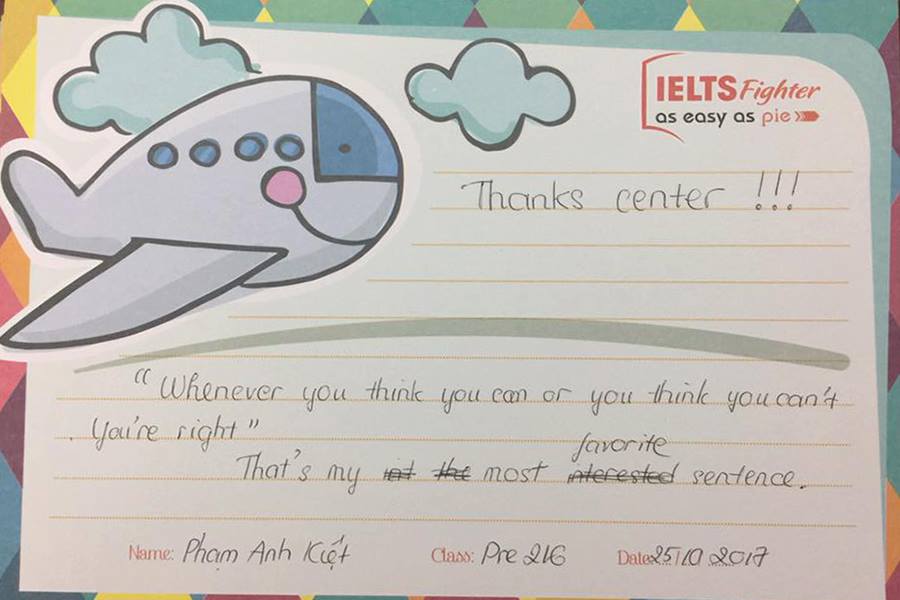 IELTS Fighter
as easy as pie
Thanks center !!!
"Whenever you think you can or you think you can't
You're right"
favorite
That's my most interested sentence.
Name: Phạm Anh Kiệt Class: Pre 216 Date: 25/10 2017